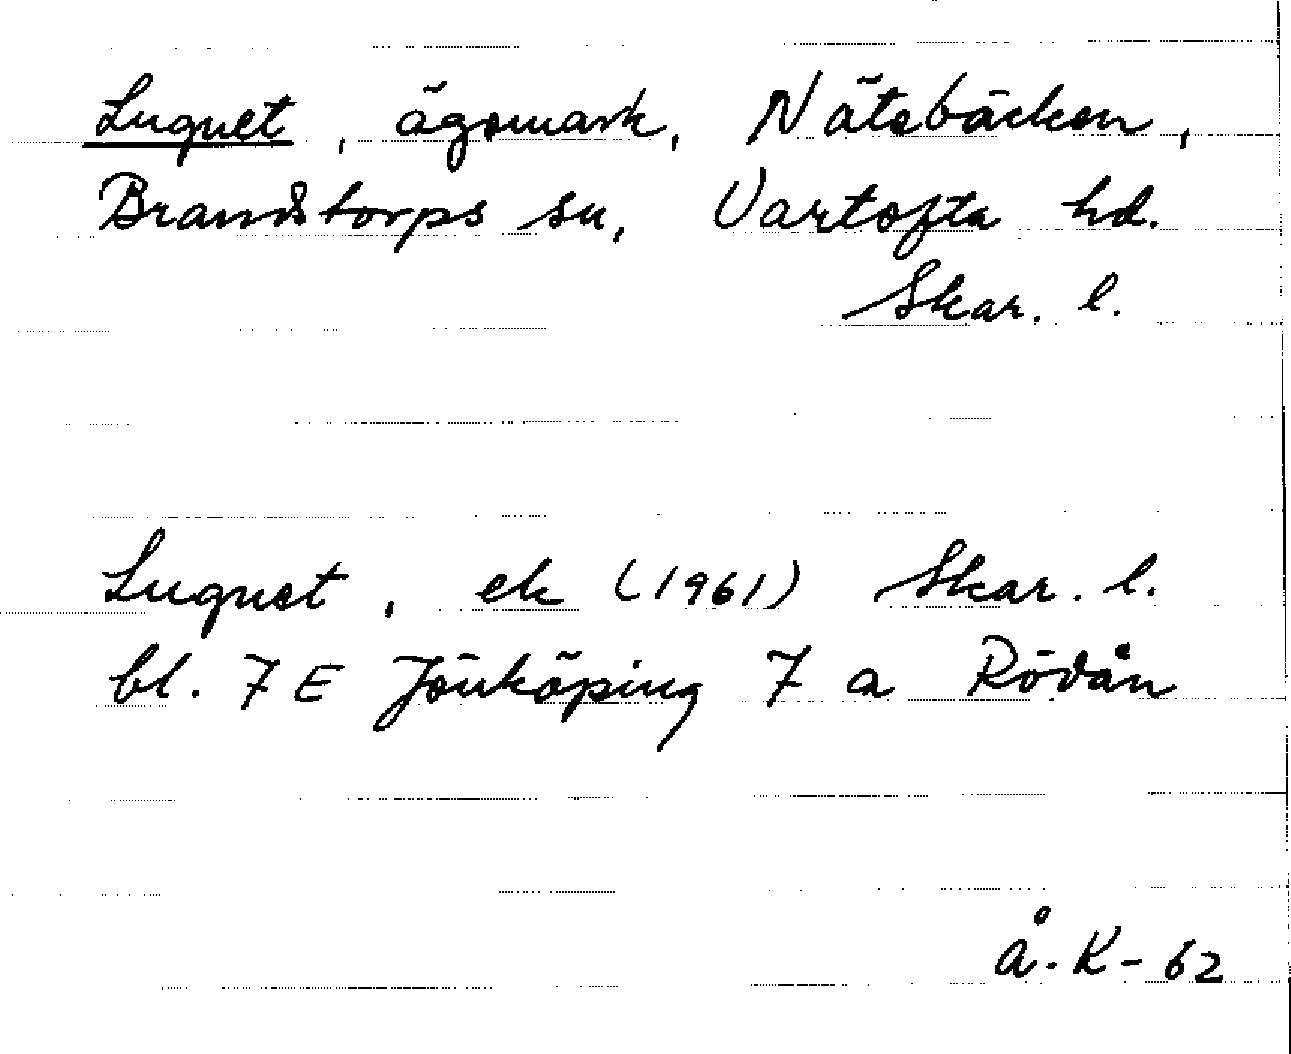 Lugnet, ägomark, Nätebäcken,
Brandstorps sn, Vartofta hd.
Skar. l.
Lugnet, ek (1961) Skar. l.
bl. 7 E Jönköping 7 a Rödån
Å. K - 62